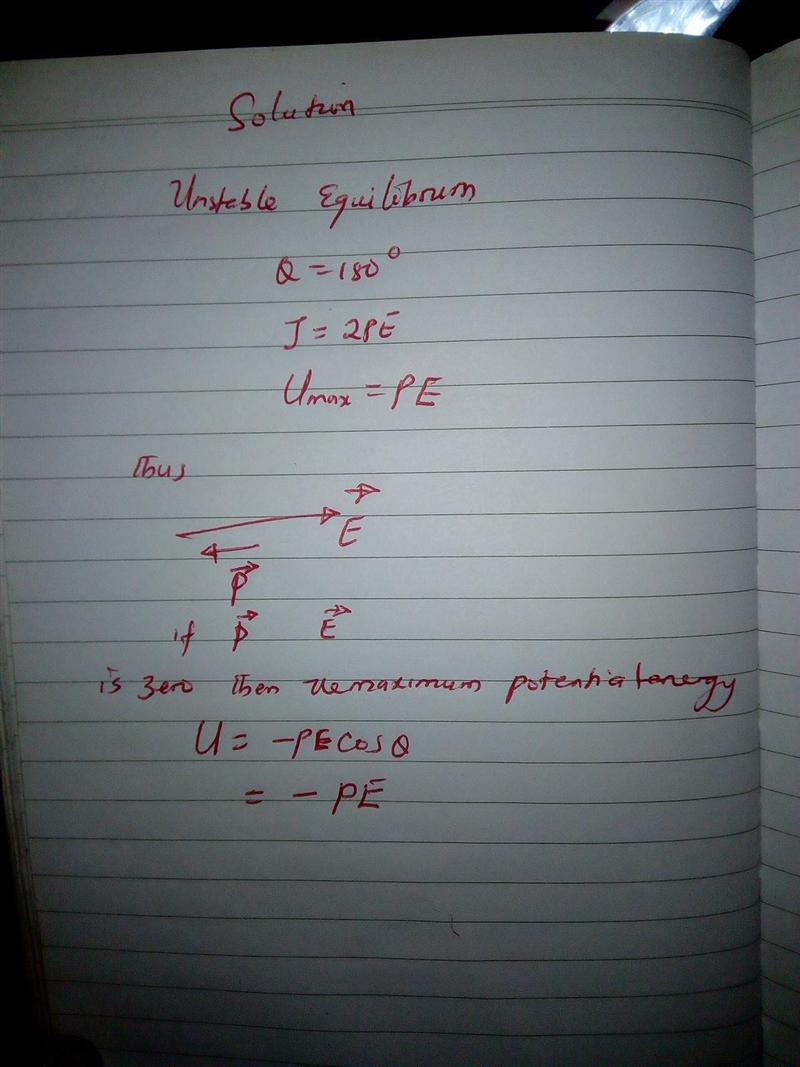 Solution
Unstable Equilibrum
θ = 180°
J = 2PE
Umax = PE
Thus
E
P
if P E
is zero then the maximum potential energy
U = -PE cos θ
= - PE